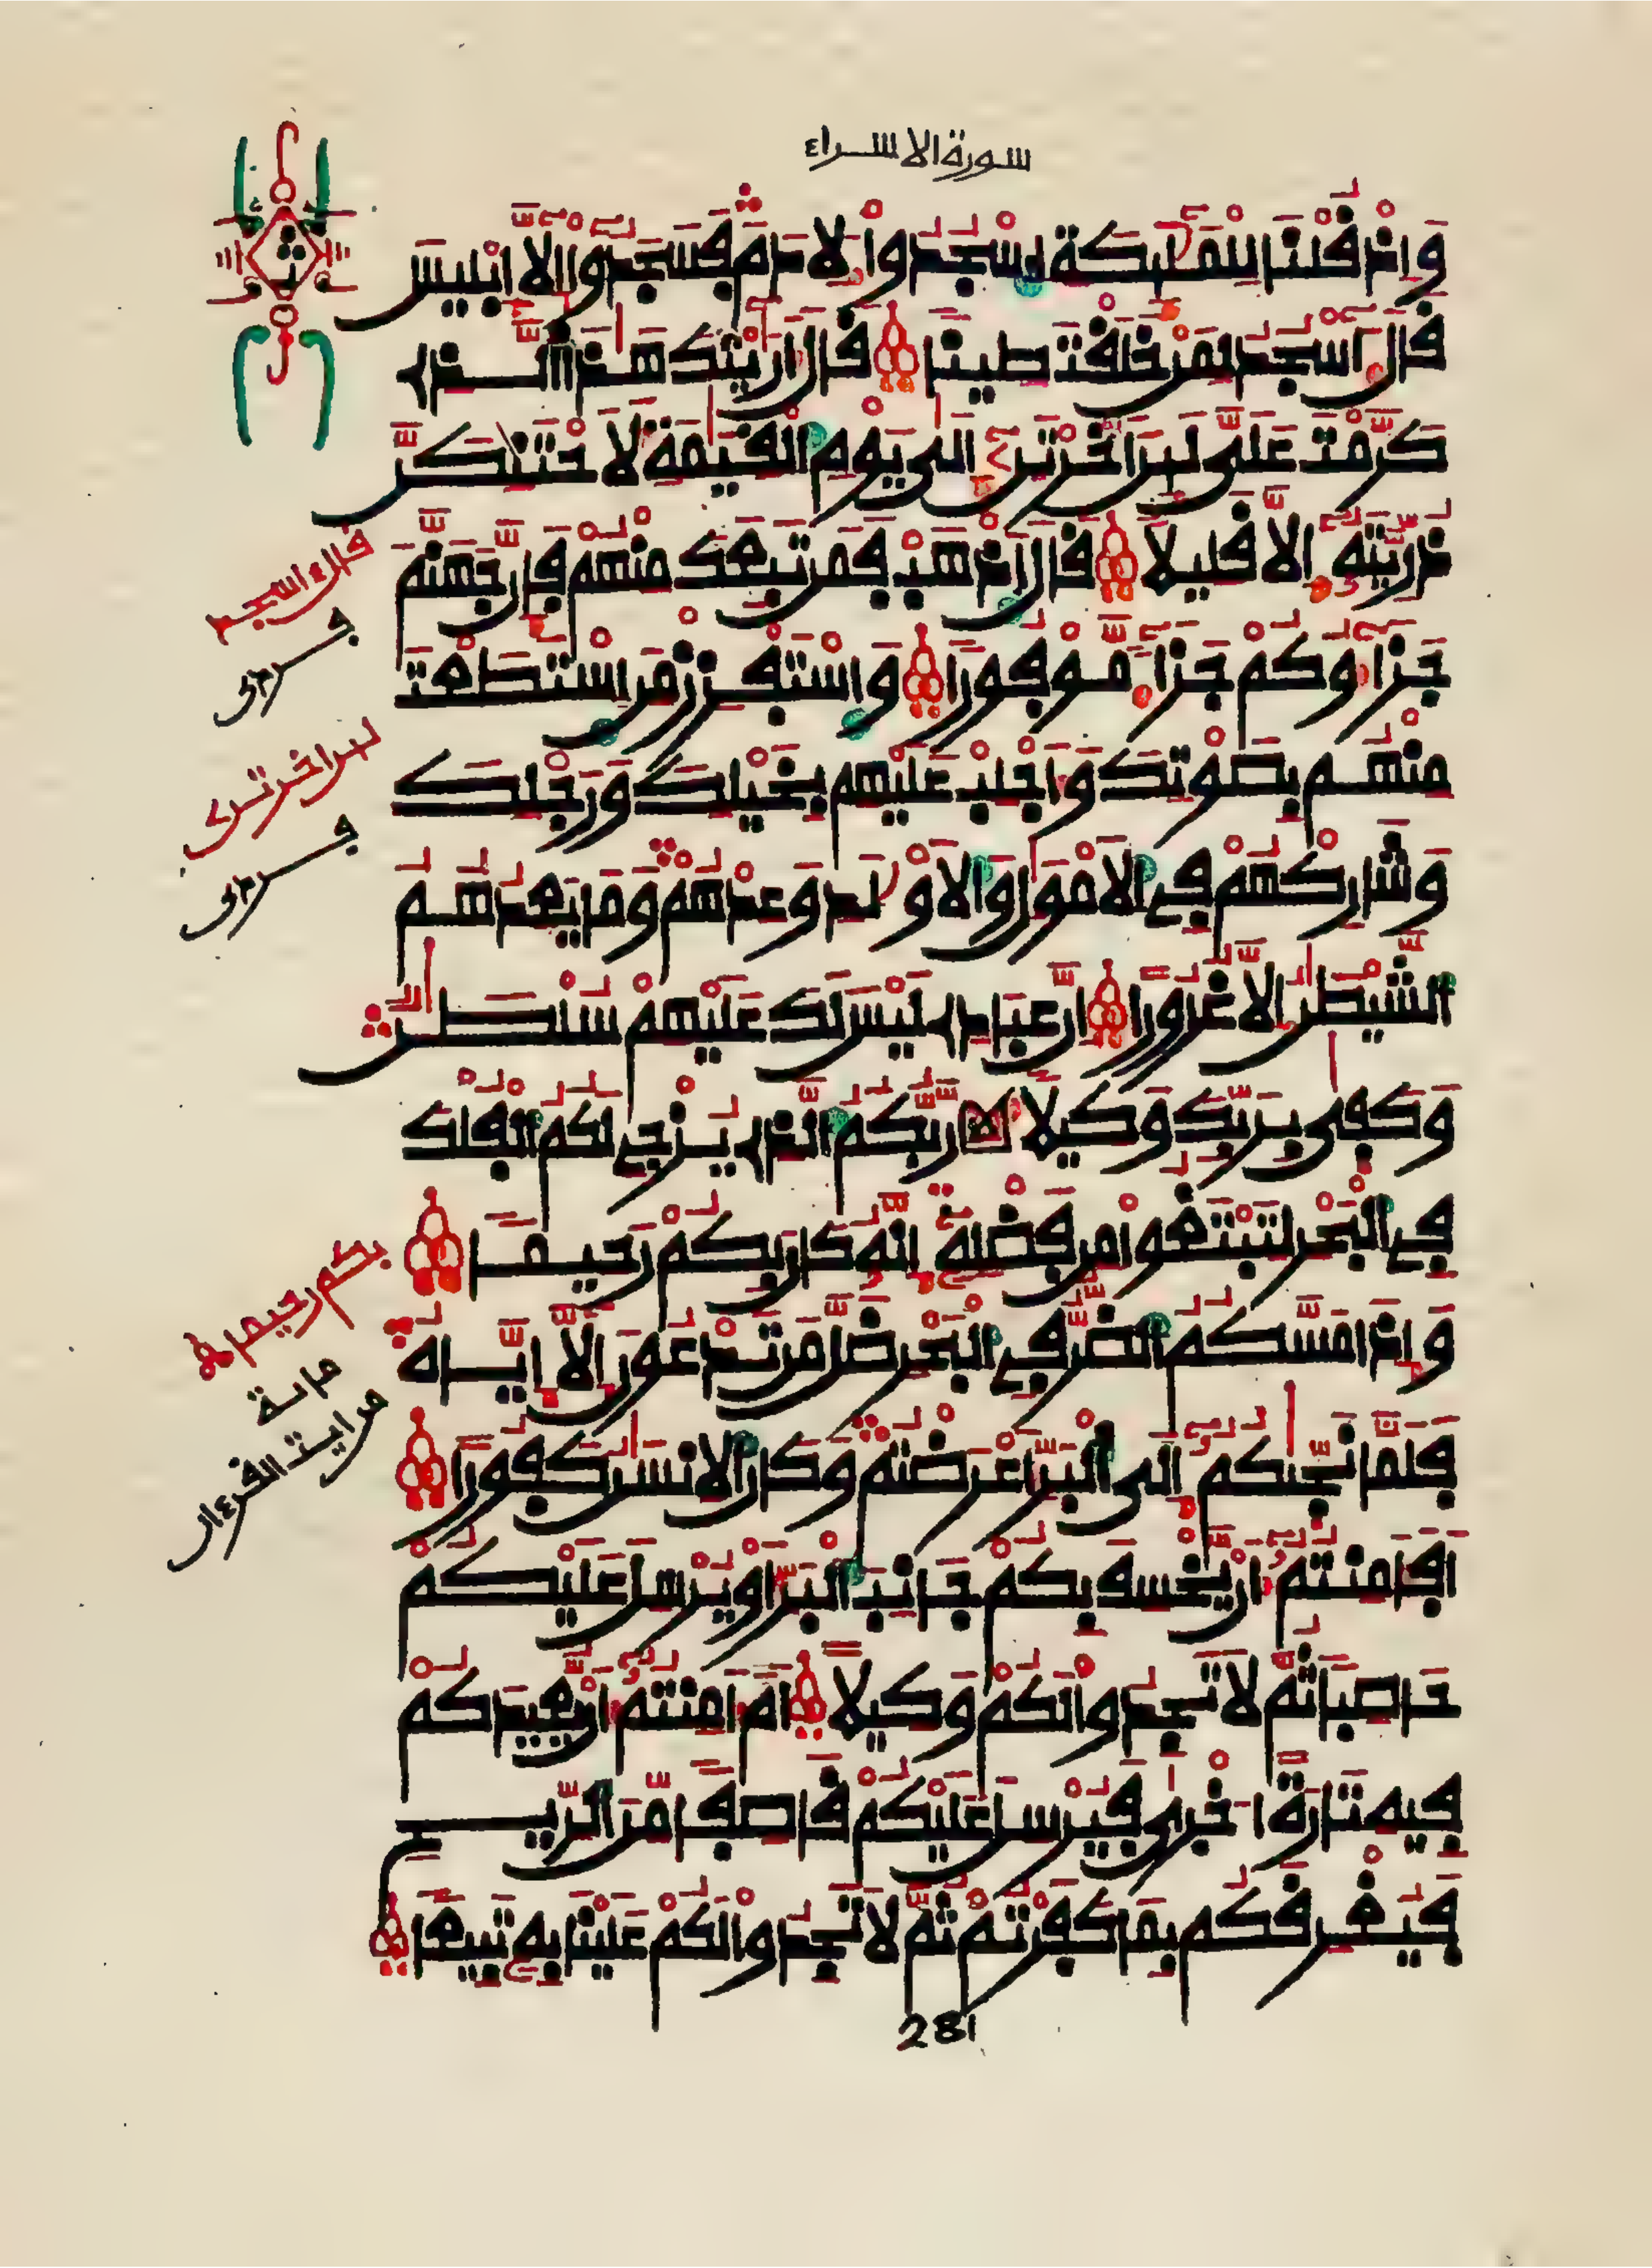 سورة الاسراء
وَإِذْ قُلْنَا لِلْمَلَٰٓئِكَةِ اِ۟سْجُدُوا۟ لِأٓدَمَ فَسَجَدُوٓا۟ إِلَّآ إِبْلِيسَ
قَالَ ءَآسْجُدُ لِمَنْ خَلَقْتَ طِينًا قَالَ أَرَٰٓيْتَكَ هَٰذَا اَ۬لَّذِے
كَرَّمْتَ عَلَيَّ لَئِنَ اَخَّرْتَنِۦٓ إِلَىٰ يَوْمِ اِ۬لْقِيَٰمَةِ لَأَحْتَنِكَنَّ
ذُرِّيَّتَهُۥٓ إِلَّا قَلِيلًا قَالَ اَ۪ذْهَبْ فَمَن تَبِعَكَ مِنْهُمْ فَإِنَّ جَهَنَّمَ
جَزَآؤُكُمْ جَزَآءً مَّوْفُورًا وَاسْتَفْزِزْ مَنِ اِ۪سْتَطَعْتَ
مِنْهُم بِصَوْتِكَ وَأَجْلِبْ عَلَيْهِم بِخَيْلِكَ وَرَجْلِكَ
وَشَارِكْهُمْ فِے اِ۬لَامْوَٰلِ وَالَاوْلَٰدِ وَعِدْهُمْ وَمَا يَعِدُهُمُ
اُ۬لشَّيْطَٰنُ إِلَّا غُرُورًا إِنَّ عِبَادِے لَيْسَ لَكَ عَلَيْهِمْ سُلْطَٰنٌ
وَكَفَىٰ بِرَبِّكَ وَكِيلًا رَّبُّكُمُ اُ۬لذِے يُزْجِے لَكُمُ اُ۬لْفُلْكَ
فِے اِ۬لْبَحْرِ لِتَبْتَغُوا۟ مِن فَضْلِهِۦٓ إِنَّهُۥ كَانَ بِكُمْ رَحِيمًا
وَإِذَا مَسَّكُمُ اُ۬لضُّرُّ فِے اِ۬لْبَحْرِ ضَلَّ مَن تَدْعُونَ إِلَّآ إِيَّاهُ
فَلَمَّا نَجَّىٰكُمُۥٓ إِلَى اَ۬لْبَرِّ أَعْرَضْتُمْ وَكَانَ اَ۬لِانسَٰنُ كَفُورًا
أَفَأَمِنتُمُۥٓ أَنْ يَّخْسِفَ بِكُمْ جَانِبَ اَ۬لْبَرِّ أَوْ يُرْسِلَ عَلَيْكُمْ
حَاصِبًا ثُمَّ لَا تَجِدُوا۟ لَكُمْ وَكِيلًا أَمَ اَمِنتُمُۥٓ أَنْ يُّعِيدَكُمْ
فِيهِ تَارَةً اُخْرَىٰ فَيُرْسِلَ عَلَيْكُمْ قَاصِفًا مِّنَ اَ۬لرِّيحِ
فَيُغْرِقَكُم بِمَا كَفَرْتُمْ ثُمَّ لَا تَجِدُوا۟ لَكُمْ عَلَيْنَا بِهِۦ تَبِيعًا
281
ث
قال ءاسجد
لئن اخرتن
بكم رحيما
مائة
من ايت القرءان